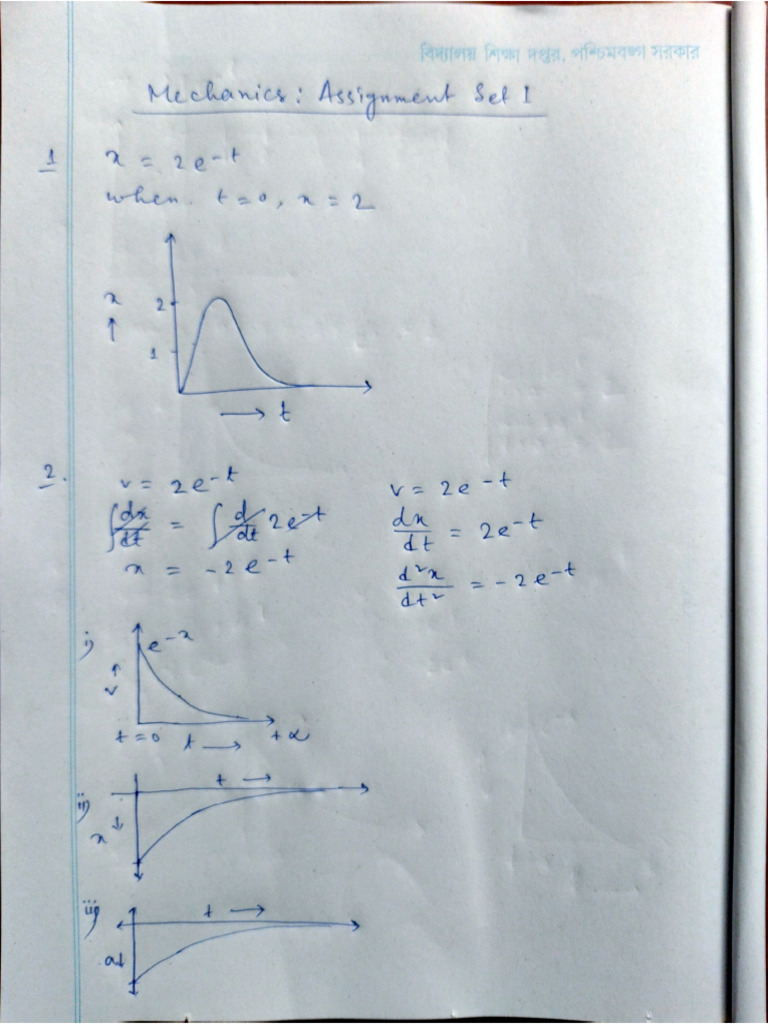 বিদ্যালয় শিক্ষা দপ্তর, পশ্চিমবঙ্গ সরকার
Mechanics: Assignment Set 1
1 x = 2e^-t
when. t=0, x = 2
x ↑
2
1
→ t
2. v = 2e^-t
∫dx/dt = ∫d/dt 2e^-t
x = -2e^-t
v = 2e^-t
dx/dt = 2e^-t
d²x/dt² = -2e^-t
i) e^-x
v ↑
t=0 t → +∝
ii) t →
x ↓
iii) t →
a↓